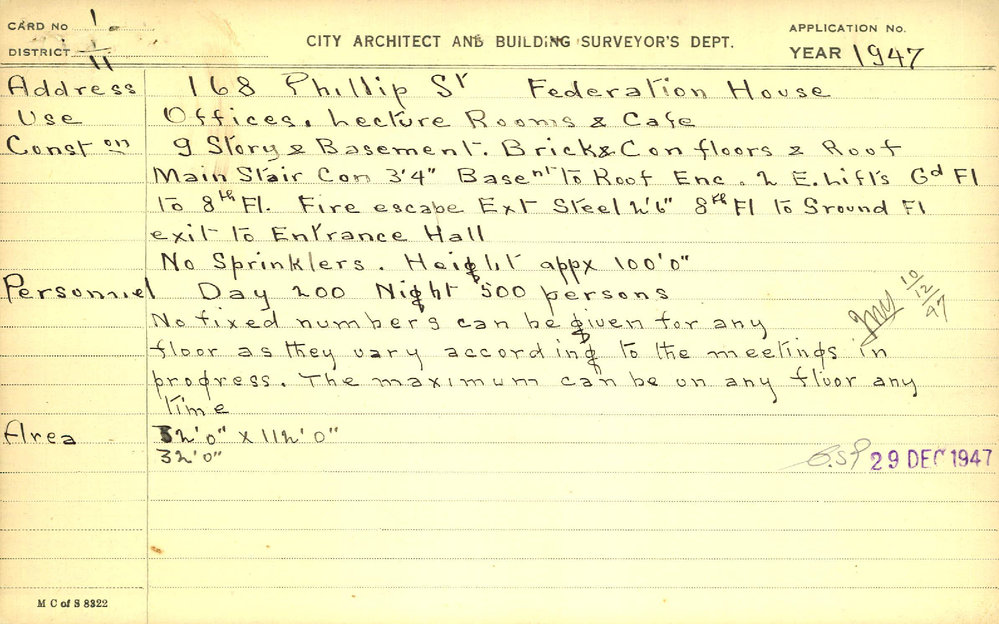 CARD No 1.
APPLICATION No.
DISTRICT 1/11
CITY ARCHITECT AND BUILDING SURVEYOR'S DEPT.
YEAR 1947
Address 168 Phillip St Federation House
Use Offices. Lecture Rooms & Cafe
Const on 9 Story & Basement. Brick & Con floors & Roof
Main Stair Con 3'4" Basent to Roof Enc. 2 E. Lifts Gd Fl
to 8th Fl. Fire escape Ext Steel 2'6" 8th Fl to Ground Fl
exit to Entrance Hall
No Sprinklers. Height appx 100'0"
Personnel Day 200 Night 500 persons
No fixed numbers can be given for any
floor as they vary according to the meetings in
progress. The maximum can be on any floor any
time
10/12/47
Area 32'0" x 112'0"
32'0"
29 DEC 1947
M C of S 8322